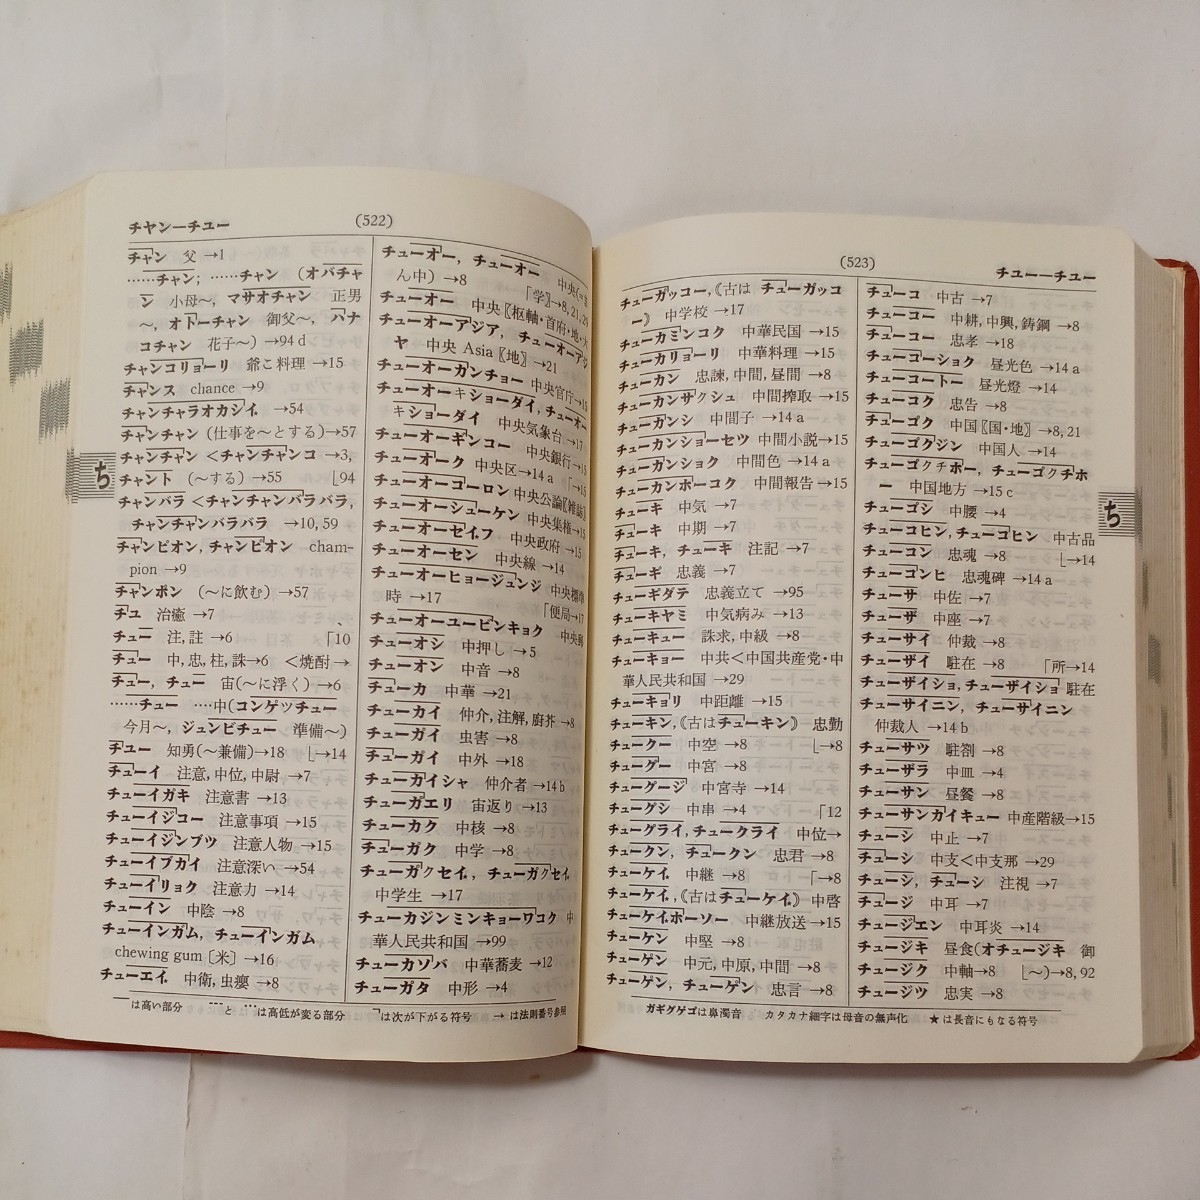 チヤン―チユー
(522)
チャン 父 →1
……チャン; ……チャン (オバチャ
ン 小母～, マサオチャン 正男
～, オトーチャン 御父～, ハナ
コチャン 花子～) →94 d
チャンコリョーリ 爺こ料理 →15
チャンス chance →9
チャンチャラオカシイ →54
チャンチャン (仕事を～とする)→57
チャンチャン <チャンチャンコ →3,
チャント (～する) →55 ⌊94
チャンバラ <チャンチャンバラバラ,
チャンチャンバラバラ →10, 59
チャンピオン, チャンピオン cham-
pion →9
チャンポン (～に飲む) →57
チユ 治癒 →7
チュー 注, 註 →6 ｢10
チュー 中, 忠, 柱, 誅→6 <焼酎→
チュー, チュー 宙(～に浮く) →6
……チュー ‥‥中(コンゲツチュー
今月～, ジュンビチュー 準備～)
チユー 知勇(～兼備)→18 ⌊→14
チューイ 注意, 中位, 中尉 →7
チューイガキ 注意書 →13
チューイジコー 注意事項 →15
チューイジンブツ 注意人物 →15
チューイブカイ 注意深い →54
チューイリョク 注意力 →14
チューイン 中陰 →8
チューインガム, チューインガム
chewing gum [米] →16
チューエイ 中衛, 虫癭 →8
チューオー, チューオー 中央(=ま
ん中) →8 ｢学〗→8, 21, 29
チューオー 中央〖枢軸・首府・地・大
チューオーアジア, チューオーアジ
ヤ 中央 Asia〖地〗 →21
チューオーカンチョー 中央官庁→15
チューオーキショーダイ, チューオー
キショーダイ 中央気象台→17
チューオーギンコー 中央銀行→15
チューオーク 中央区→14 a ｢→15
チューオーコーロン 中央公論〖雑誌〗
チューオーシューケン 中央集権→15
チューオーセイフ 中央政府 →15
チューオーセン 中央線 →14
チューオーヒョージュンジ 中央標準
時 →17 ｢便局→17
チューオーユービンキョク 中央郵
チューオシ 中押し →5
チューオン 中音 →8
チューカ 中華 →21
チューカイ 仲介, 注解, 厨芥 →8
チューガイ 虫害 →8
チューガイ 中外 →18
チューカイシャ 仲介者 →14 b
チューガエリ 宙返り →13
チューカク 中核 →8
チューガク 中学 →8
チューガクセイ, チューガクセイ
中学生 →17
チューカジンミンキョーワコク 中
華人民共和国 →99
チューカソバ 中華蕎麦 →12
チューガタ 中形 →4
―は高い部分 ┄┄と‥‥は高低が変る部分 ﹁は次が下がる符号 →は法則番号参照
ち
(523)
チユー―チユー
チューガッコー,《古は チューガッコ
ー》 中学校 →17
チューカミンコク 中華民国 →15
チューカリョーリ 中華料理 →15
チューカン 忠諫, 中間, 昼間 →8
チューカンサクシュ 中間搾取 →15
チューカンシ 中間子 →14 a
チューカンショーセツ 中間小説→15
チューカンショク 中間色 →14 a
チューカンホーコク 中間報告 →15
チューキ 中気 →7
チューキ 中期 →7
チューキ, チューキ 注記 →7
チューギ 忠義 →7
チューギダテ 忠義立て →95
チューキヤミ 中気病み →13
チューキュー 誅求, 中級 →8
チューキョー 中共<中国共産党・中
華人民共和国 →29
チューキョリ 中距離 →15
チューキン,《古はチューキン》 忠勤
チュークー 中空 →8 ⌊→8
チューグー 中宮 →8
チューグージ 中宮寺 →14
チューグシ 中串 →4 ｢12
チューグライ, チュークライ 中位→
チュークン, チュークン 忠君 →8
チューケイ 中継 →8 ｢→8
チューケイ,《古はチューケイ》 中啓
チューケイホーソー 中継放送 →15
チューケン 中堅 →8
チューゲン 中元, 中原, 中間 →8
チューゲン, チューゲン 忠言 →8
チューコ 中古 →7
チューコー 中耕, 中興, 鋳鋼 →8
チューコー 忠孝 →18
チューコーショク 昼光色 →14 a
チューコートー 昼光燈 →14
チューコク 忠告 →8
チューゴク 中国〖国・地〗→8, 21
チューゴクジン 中国人 →14
チューゴクチホー, チューゴクチホ
ー 中国地方 →15 c
チューゴシ 中腰 →4
チューコヒン, チューゴヒン 中古品
チューコン 忠魂 →8 ⌊→14
チューコンヒ 忠魂碑 →14 a
チューサ 中佐 →7
チューザ 中座 →7
チューサイ 仲裁 →8
チューザイ 駐在 →8 ｢所→14
チューザイショ, チューザイショ 駐在
チューサイニン, チューサイニン
仲裁人 →14 b
チューサツ 駐箚 →8
チューザラ 中皿 →4
チューサン 昼餐 →8
チューサンカイキュー 中産階級→15
チューシ 中止 →7
チューシ 中支<中支那 →29
チューシ, チューシ 注視 →7
チュージ 中耳 →7
チュージエン 中耳炎 →14
チュージキ 昼食(オチュージキ 御
チュージク 中軸→8 ⌊～)→8, 92
チュージツ 忠実 →8
ガギグゲゴは鼻濁音 カタカナ細字は母音の無声化 ★は長音にもなる符号
ち